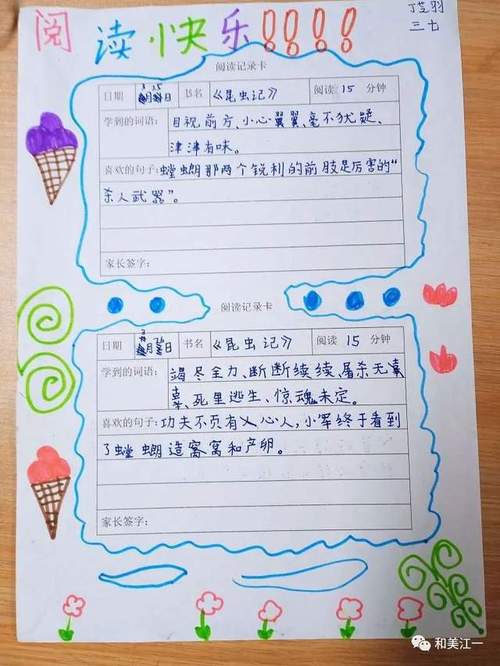 阅读快乐!!!!
丁芝羽
三七
阅读记录卡
日期 3月25日 书名 《昆虫记》 阅读 15 分钟
学到的词语: 目视前方、小心翼翼、毫不犹疑、
津津有味。
喜欢的句子: 螳螂那两个锐利的前肢是厉害的“
杀人武器”。
家长签字:
阅读记录卡
日期 月 日 书名 《昆虫记》 阅读 15 分钟
学到的词语: 竭尽全力、断断续续、屠杀无
辜、死里逃生、惊魂未定。
喜欢的句子: 功夫不负有心人,小军终于看到
了螳螂造窝窝和产卵。
家长签字:
和美江一